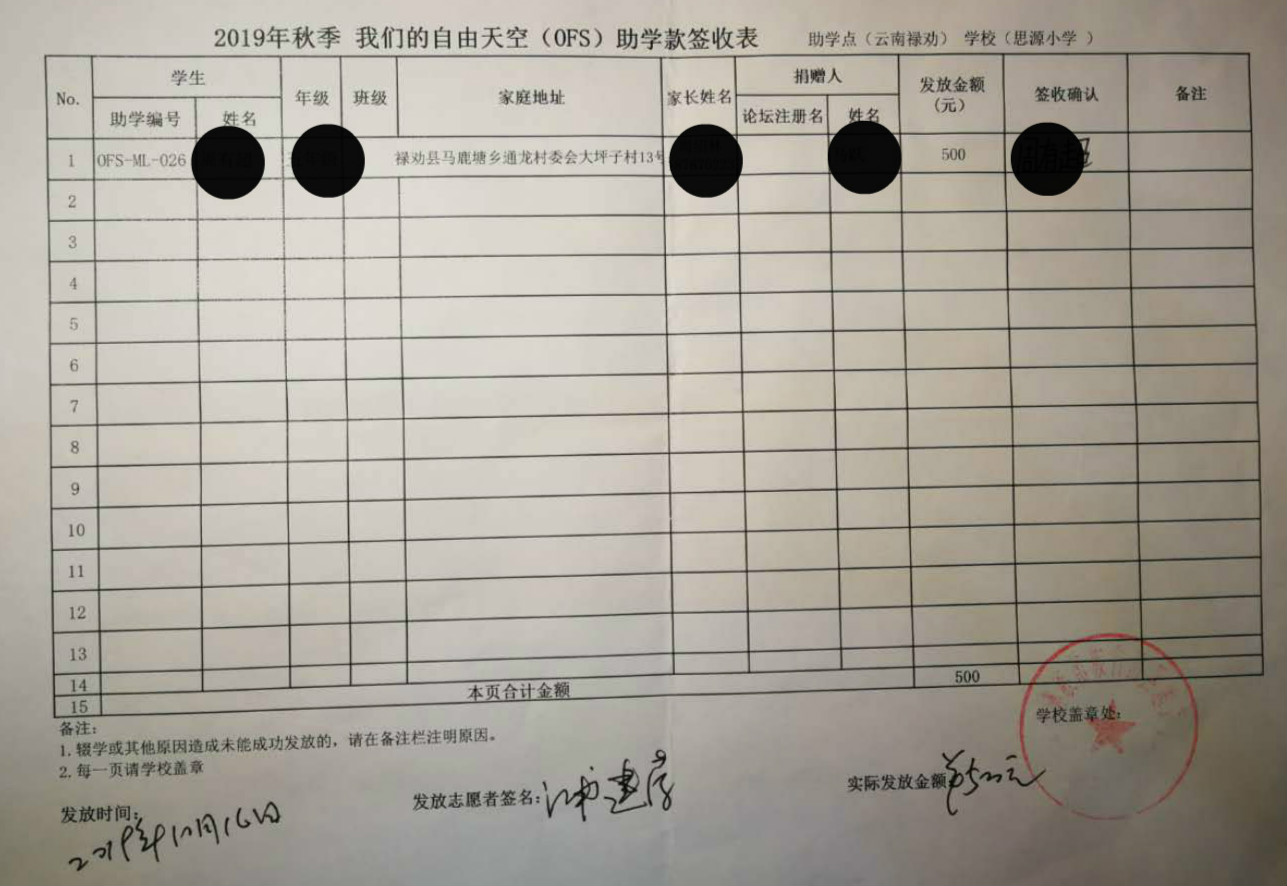 2019年秋季 我们的自由天空（OFS）助学款签收表 助学点（云南禄劝） 学校（思源小学 ）
No. 学生 年级 班级 家庭地址 家长姓名 捐赠人 发放金额（元） 签收确认 备注
助学编号 姓名 论坛注册名 姓名
1 OFS-ML-026 禄劝县马鹿塘乡通龙村委会大坪子村13号 500
2
3
4
5
6
7
8
9
10
11
12
13
14 500
15 本页合计金额
备注：
1. 辍学或其他原因造成未能成功发放的，请在备注栏注明原因。
2. 每一页请学校盖章
学校盖章处：
发放时间： 发放志愿者签名： 实际发放金额
2019年10月16日